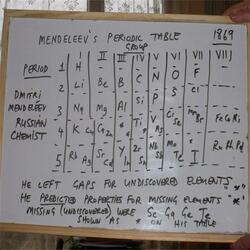 MENDELEEV'S PERIODIC TABLE 1869
GROUP
PERIOD I II III IV V VI VII VIII
1 H
2 Li Be B C N O F
DMITRI 3 Na Mg Al Si P S Cl
MENDELEEV
RUSSIAN 4 K Cu Ca * * Ti * V As Cr Se Mn Br Fe Co Ni
CHEMIST
5 Rb Ag Sr Cd Y In Zr Sn Nb Sb Mo Te * I Ru Rh Pd
HE LEFT GAPS FOR UNDISCOVERED ELEMENTS '*'
HE PREDICTED PROPERTIES FOR MISSING ELEMENTS '*'
MISSING (UNDISCOVERED) WERE Sc Ga Ge Tc
SHOWN AS * ON HIS TABLE